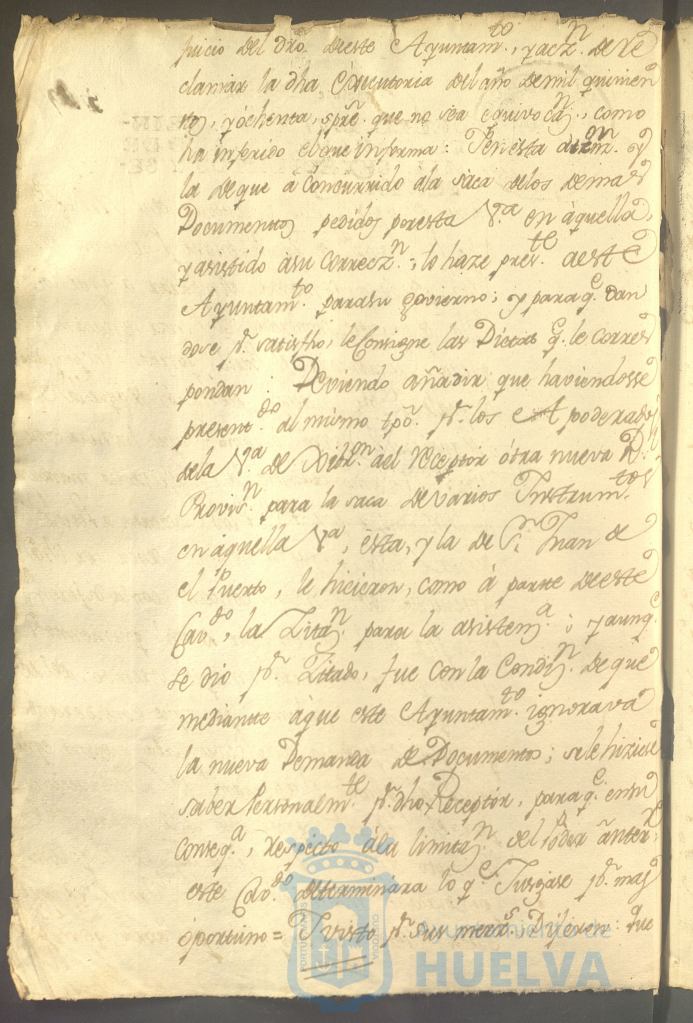 juicio del dro. deeste Ayuntamto., yaczn. de Re
clamar la dha Executoria del año demil quinien
tos, yochenta, spre. que no sea equivocazn., como
ha inferido el que informa: Y en esta atenzn. y
la de que a Concurrido ála saca delos demas
Documentos pedidos poresta Va. en áquella,
yasistido asu Correczn.; lo haze preste. aeste
Ayuntamto. parasu govierno; y paraqe. dan
dose pr. satisfho, le Consigne las Dietas qe. le corres
pondan: Deviendo añadir que haviendosse
presentdo. al mismo tpo. pr. los Apoderados
dela Va. de Gibrn. del Receptor ótra nueva Rl.
Provisn. para la saca de varios Instrumtos.
en áquella Va, ésta, y la de Sn. Juan de
el Puerto, le hicieron, como á parte deeste
Cavdo., la Zitazn. para la asistenza.; yaunqe.
se dio pr. Zitado, fue con la Condizn. de que
mediante áque este Ayuntamto. ignorava
la nueva Demanda de Documentos; sele hiziese
saber Personalmte. pr. dho Receptor, paraqe. en su
Conseqa., respecto ála limitazn. del Poder ánterr.
este Cavdo. determinara lo qe. Juzgase pr. mas
óportuno = Justo pr. sus merzs. Dijeron: que
Ayuntamiento de
HUELVA